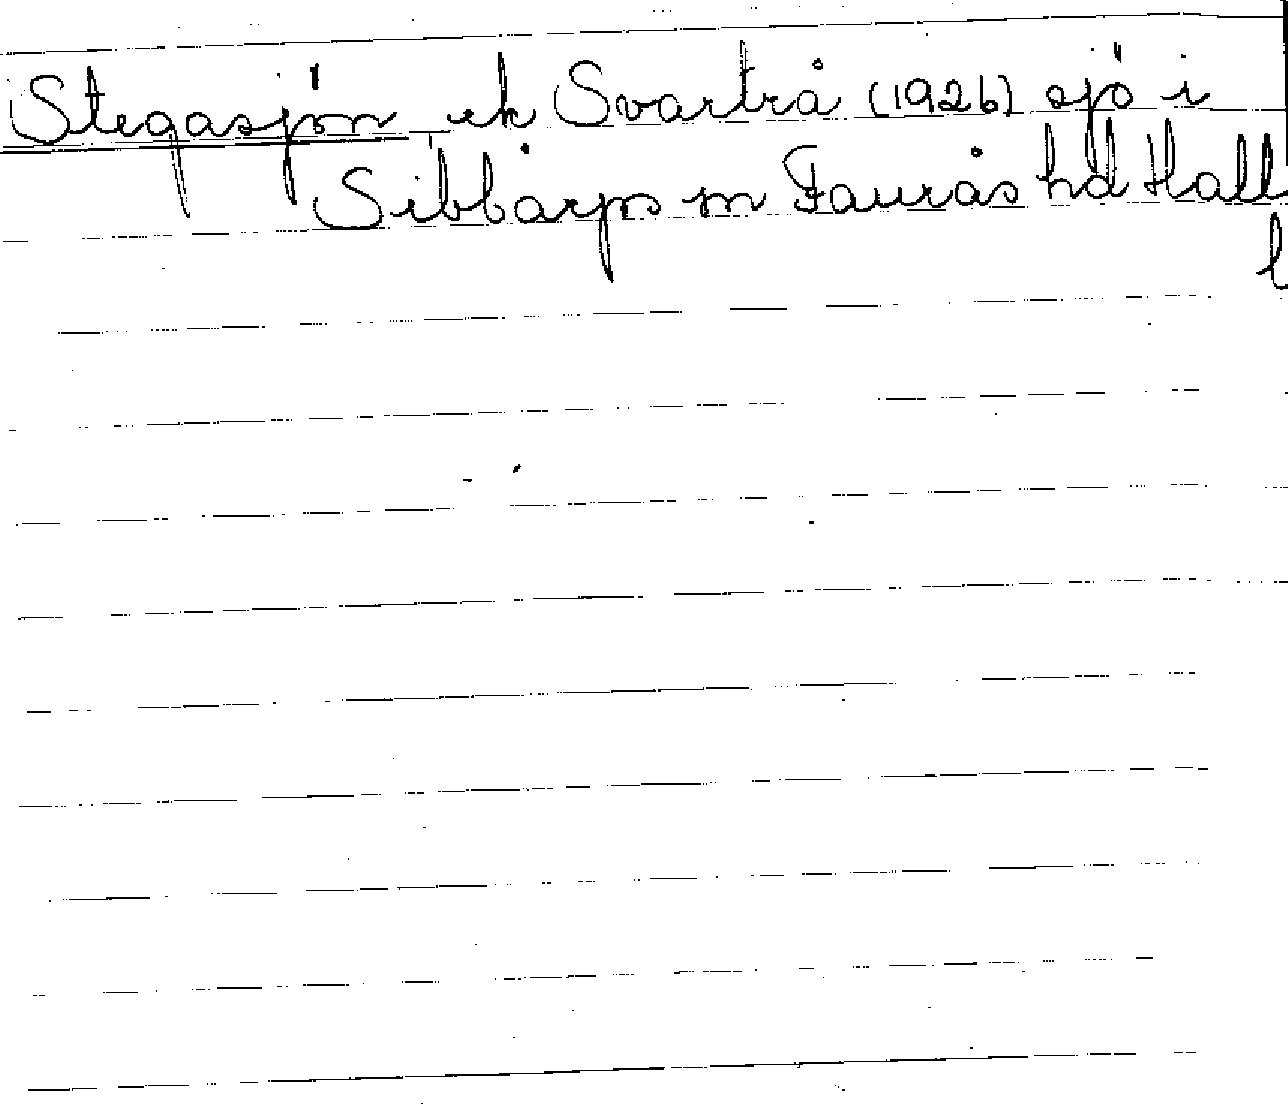 Stegasjön ek Svartrå (1926) sjö i
Sibbarps sn Faurås hd Hall
l